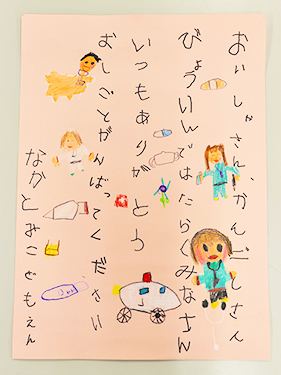 おいしゃさん、かんごしさん
びょういんではたらくみなさん
いつもありがとう
おしごとがんばってください
なかとみこどもえん